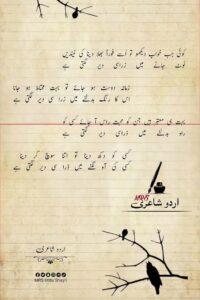 کوئی جب خواب دیکھو تو اسے فوراً بھلا دینا کہ نیندیں
ٹوٹ جانے میں ذرا سی دیر لگتی ہے
زمانہ دوست ہو جائے تو بہت محتاط ہو جانا
اس کا رنگ بدلنے میں ذرا سی دیر لگتی ہے
بہت ہی معتبر ہیں جن کو محبت راس آ جائے کسی کو
راہ بدلنے میں ذرا سی دیر لگتی ہے
کسی کو دکھ دینا تو اتنا سوچ کر دینا
کسی کی آہ لگنے میں ذرا سی دیر لگتی ہے
اردو شاعری
اردو شاعری
MRS Urdu Shayri